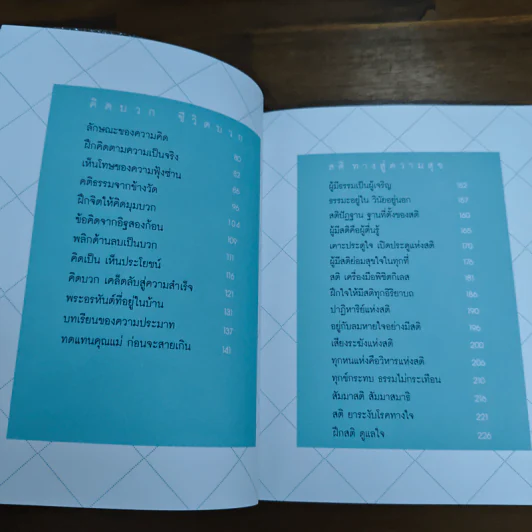 คิดบวก ชีวิตบวก
ลักษณะของความคิด 80
ฝึกคิดตามความเป็นจริง 83
เห็นโทษของความฟุ้งซ่าน 88
คติธรรมจากข้างวัด 95
ฝึกจิตให้คิดมุมบวก 104
ข้อคิดจากอิฐสองก้อน 109
พลิกด้านลบเป็นบวก 111
คิดเป็น เห็นประโยชน์ 116
คิดบวก เคล็ดลับสู่ความสำเร็จ 121
พระอรหันต์ที่อยู่ในบ้าน 131
บทเรียนของความประมาท 137
ทดแทนคุณแม่ ก่อนจะสายเกิน 141
สติ ทางสู่ความสุข
ผู้มีธรรมเป็นผู้เจริญ 152
ธรรมะอยู่ใน วินัยอยู่นอก 157
สติปัฏฐาน ฐานที่ตั้งของสติ 160
ผู้มีสติคือผู้ตื่นรู้ 165
เคาะประตูใจ เปิดประตูแห่งสติ 170
ผู้มีสติย่อมสุขใจในทุกที่ 176
สติ เครื่องมือพิชิตกิเลส 181
ฝึกใจให้มีสติทุกอิริยาบถ 186
ปาฏิหาริย์แห่งสติ 190
อยู่กับลมหายใจอย่างมีสติ 196
เสียงระฆังแห่งสติ 200
ทุกหนแห่งคือวิหารแห่งสติ 206
ทุกข์กระทบ ธรรมไม่กระเทือน 210
สัมมาสติ สัมมาสมาธิ 216
สติ ยาระงับโรคทางใจ 221
ฝึกสติ ดูแลใจ 226